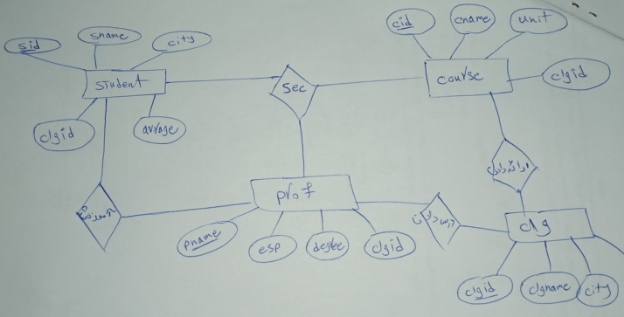 sid
sname
city
student
clgid
avrage
sec
cid
cname
unit
course
clgid
آموزش
prof
pname
esp
degree
clgid
ارائه دادن
clg
clgid
clgname
city